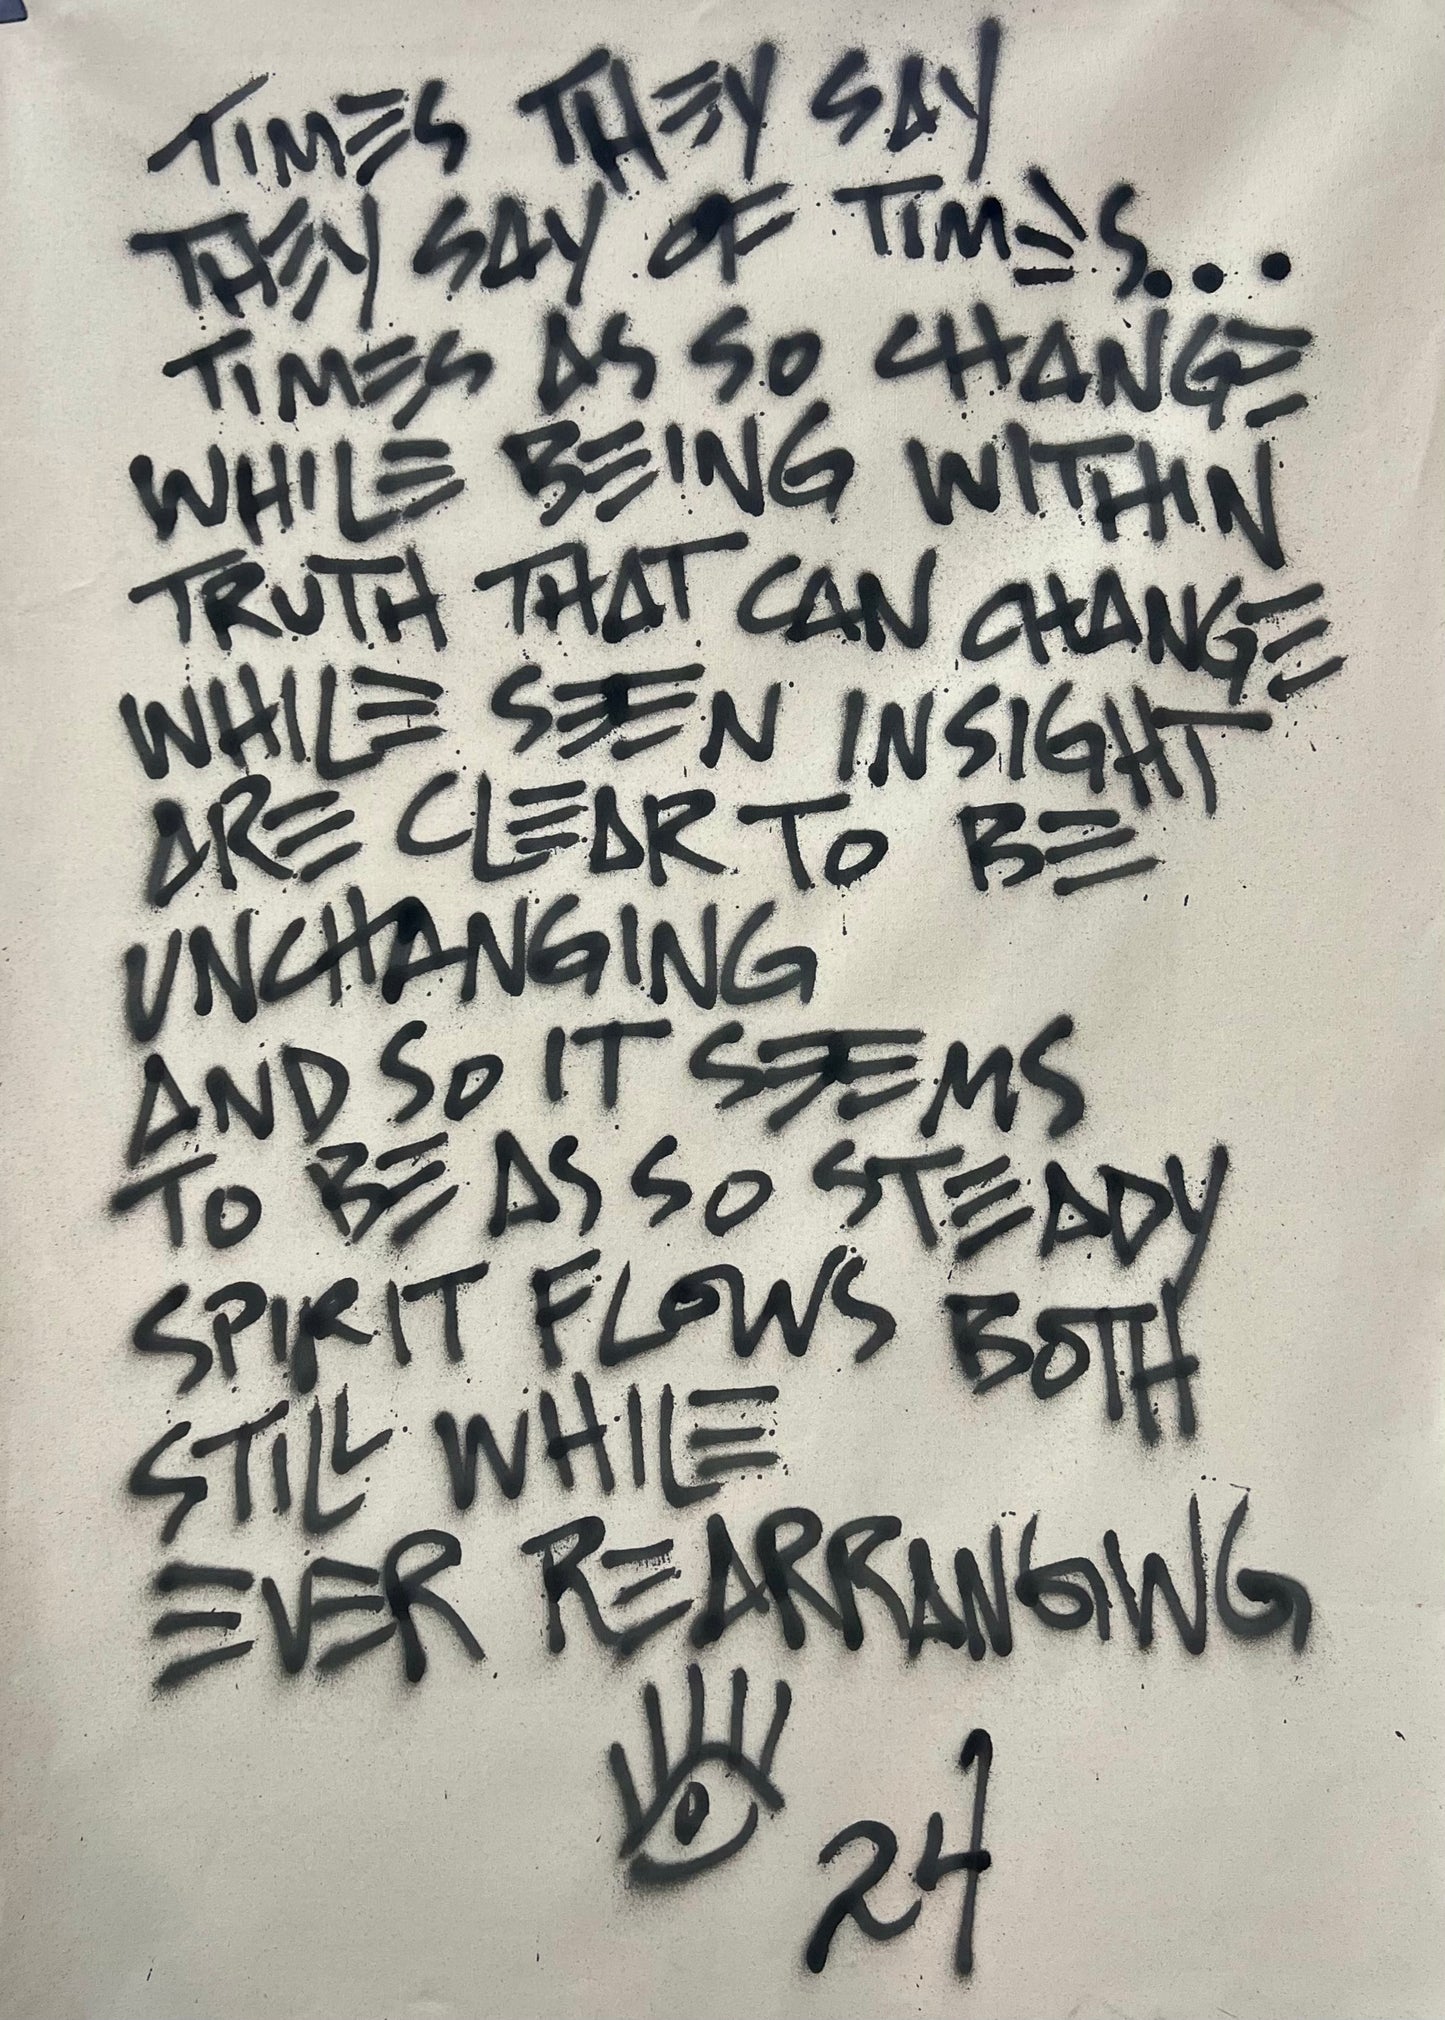 TIMES THEY SAY
THEY SAY OF TIMES...
TIMES AS SO CHANGE
WHILE BEING WITHIN
TRUTH THAT CAN CHANGE
WHILE SEEN INSIGHT
ARE CLEAR TO BE
UNCHANGING
AND SO IT SEEMS
TO BE AS SO STEADY
SPIRIT FLOWS BOTH
STILL WHILE
EVER REARRANGING
24